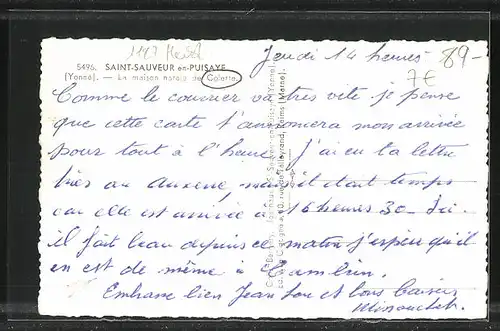 1147 
89-
7€
5496. SAINT-SAUVEUR-en-PUISAYE
(Yonne). — La maison natale de Colette.
Jeudi 14 heures
Comme le courrier va très vite je pense
que cette carte t'annoncera mon arrivée
pour tout à l'heure. J'ai eu ta lettre
hier au mais il était temps
car elle est arrivée à 16 heures 30. Ici
il fait beau depuis ce matin j'espère qu'il
en est de même à
Embrasse bien Jean Lou et bons baisers
Minouchet.